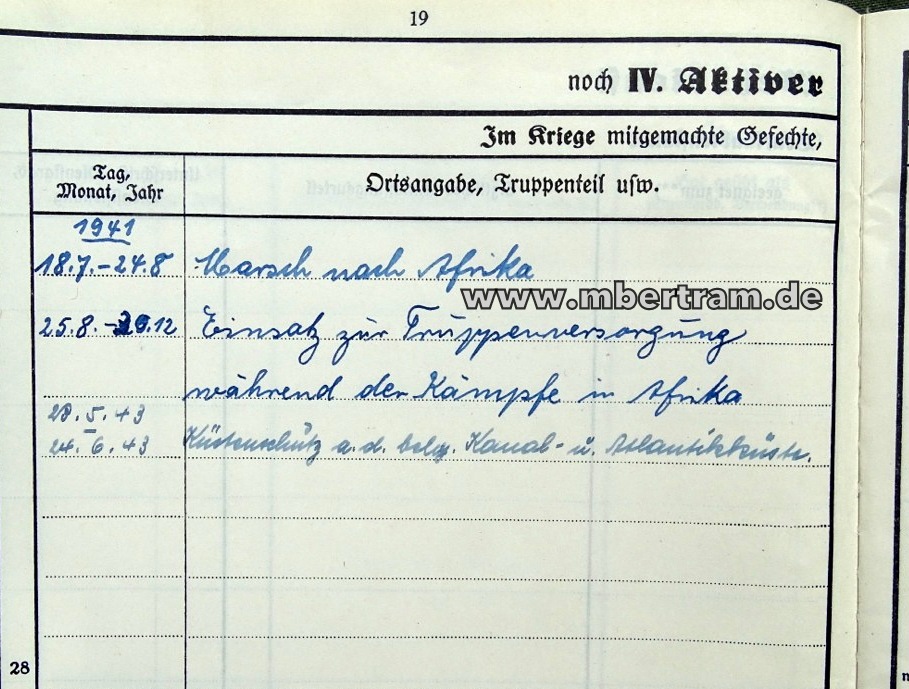 19
noch IV. Aktiver
Im Kriege mitgemachte Gefechte,
Tag, Monat, Jahr
Ortsangabe, Truppenteil usw.
1941
18.7.-24.8 Marsch nach Afrika
www.mbertram.de
25.8.-29.12 Einsatz zur Truppenversorgung
während der Kämpfe in Afrika
28.5.43
24.6.43 Küstenschutz a.d. belg. Kanal- u. Atlantikküste.
28